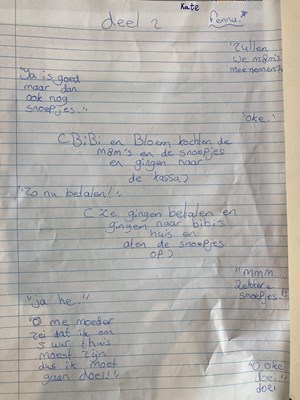 Kate
deel 2
Fenna.
"Zullen
we m&m's
meenemen?"
"Ja is goed
maar dan
ook nog
snoepjes."
"oke."
(BiBi en Bloem kochten de
m&m's en de snoepjes
en gingen naar
de kassa)
"Zo nu betalen!"
(Ze gingen betalen en
gingen naar bibis
huis en
aten de snoepjes
op)
"mmm
lekkere
snoepjes!"
"ja he."
"O me moeder
zei dat ik om
5 uur thuis
moest zijn
dus ik moet
gaan doei!"
"O oke
doei."
doei